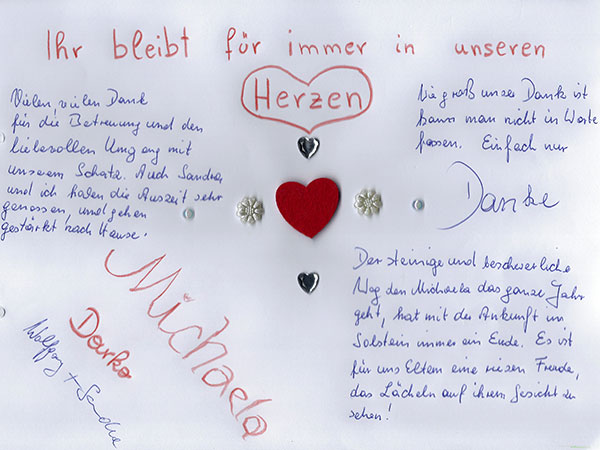 Ihr bleibt für immer in unseren
Herzen
Vielen, vielen Dank
für die Betreuung und den
liebevollen Umgang mit
unserem Schatz. Auch Sandra
und ich haben die Auszeit sehr
genossen, und gehen
gestärkt nach Hause.
Wie groß unser Dank ist
kann man nicht in Worte
fassen. Einfach nur
Danke
Der steinige und beschwerliche
Weg den Michaela das ganze Jahr
geht, hat mit der Ankunft im
Solstein immer ein Ende. Es ist
für uns Eltern eine riesen Freude,
das Lächeln auf ihrem Gesicht zu
sehen!
Michaela
Darko
Wolfgang + Sandra